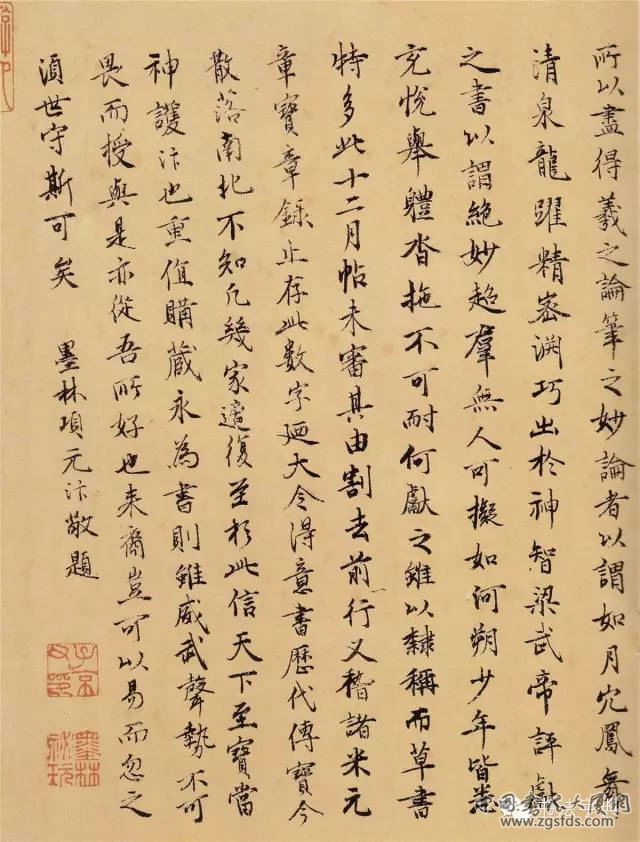 所以盡得羲之論筆之妙論者以謂如月穴鳳舞
清泉龍躍精密淵巧出於神智梁武帝評獻
之書以謂絕妙超羣無人可擬如河朔少年皆悉
充悅舉體沓拖不可耐何獻之雖以隸稱而草書
特多此十二月帖未審其由割去前一行又稽諸米元
章寶章錄止存此數字廼大令得意書歷代傳寶今
散落南北不知凡幾家適復至於此信天下至寶當
神護汴也重值購藏永為書則雖威武聲勢不可
畏而授與是亦從吾所好也耒裔豈可以易而忽之
湏世守斯可矣 墨林項元汴敬題
子京父印
墨林祕玩
www.zgsfds.com